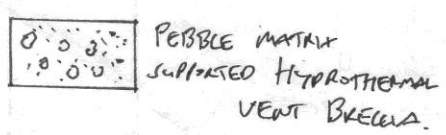 PEBBLE MATRIX
SUPPORTED HYDROTHERMAL
VENT BRECCIA.